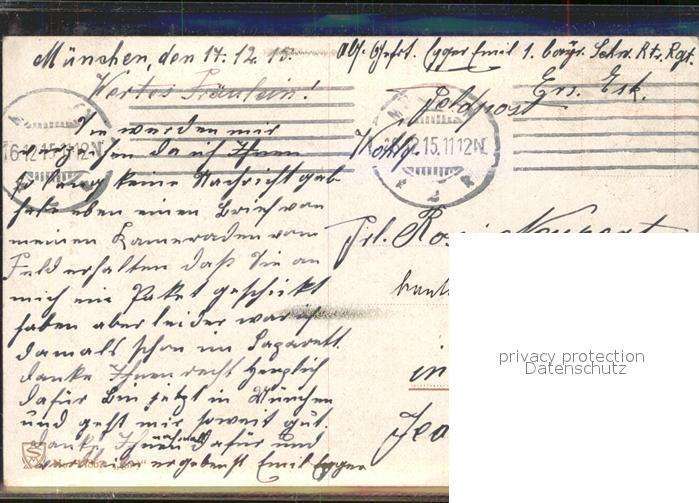 München, den 17. 12. 15.
Abs. Gefrt. Egger Emil 1. bayr. Schw. Rtr. Rgt.
Ers. Esk.
Wertes Fräulein!
Feldpost
Sie werden mir
16.12.15.11-12 N
verzeihen da ich Ihnen
16.12.15.11-12 N
so lang keine Nachricht gab
habe eben einen Brief von
meinen Kameraden vom
Frl. Rosi
Feld erhalten daß Sie an
mich ein Paket geschickt
haben aber leider war ich
damals schon im Lazarett.
danke Ihnen recht herzlich
in
dafür bin jetzt in München
und geht mir soweit gut.
danke Ihnen nochmals dafür und
verbleibe ergebenst Emil Egger
privacy protection
Datenschutz